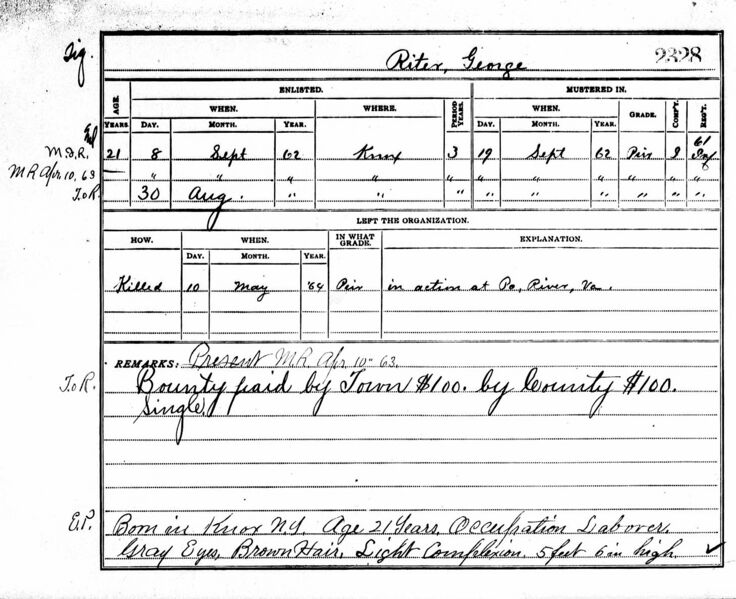 Sig.
Riter, George 2328
AGE. ENLISTED. MUSTERED IN.
WHEN. WHERE. PERIOD YEARS. WHEN. GRADE. COMP'Y. REG'T.
YEARS. DAY. MONTH. YEAR. DAY. MONTH. YEAR.
61
M.D.R. 21 8 Sept 62 Knox 3 19 Sept 62 Priv Inf
M R Apr. 10, 63 " " " " " " " " " " "
T.o.R. 30 Aug. " " " " " " " " "
LEFT THE ORGANIZATION.
HOW. WHEN. IN WHAT GRADE. EXPLANATION.
DAY. MONTH. YEAR.
Killed 10 May '64 Priv in action at Po, River, Va.
REMARKS: Present M R Apr 10" 63.
T.o.R. Bounty paid by Town $100. by County $100.
Single.
E.P. Born in Knox N.Y. Age 21 Years, Occupation Laborer.
Gray Eyes, Brown Hair, Light Complexion. 5 feet 6 in high.